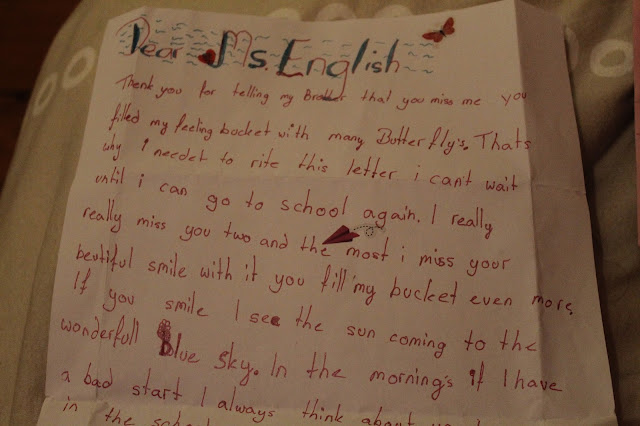 Dear Ms. English
Thank you for telling my Brother that you miss me you
filled my feeling bucket with many Butterfly's. Thats
why i needet to rite this letter i can't wait
until i can go to school again. I really
really miss you two and the most i miss your
beutiful smile with it you fill my bucket even more.
If you smile I see the sun coming to the
wonderfull Blue Sky. In the morning's if I have
a bad start I always think about
in the